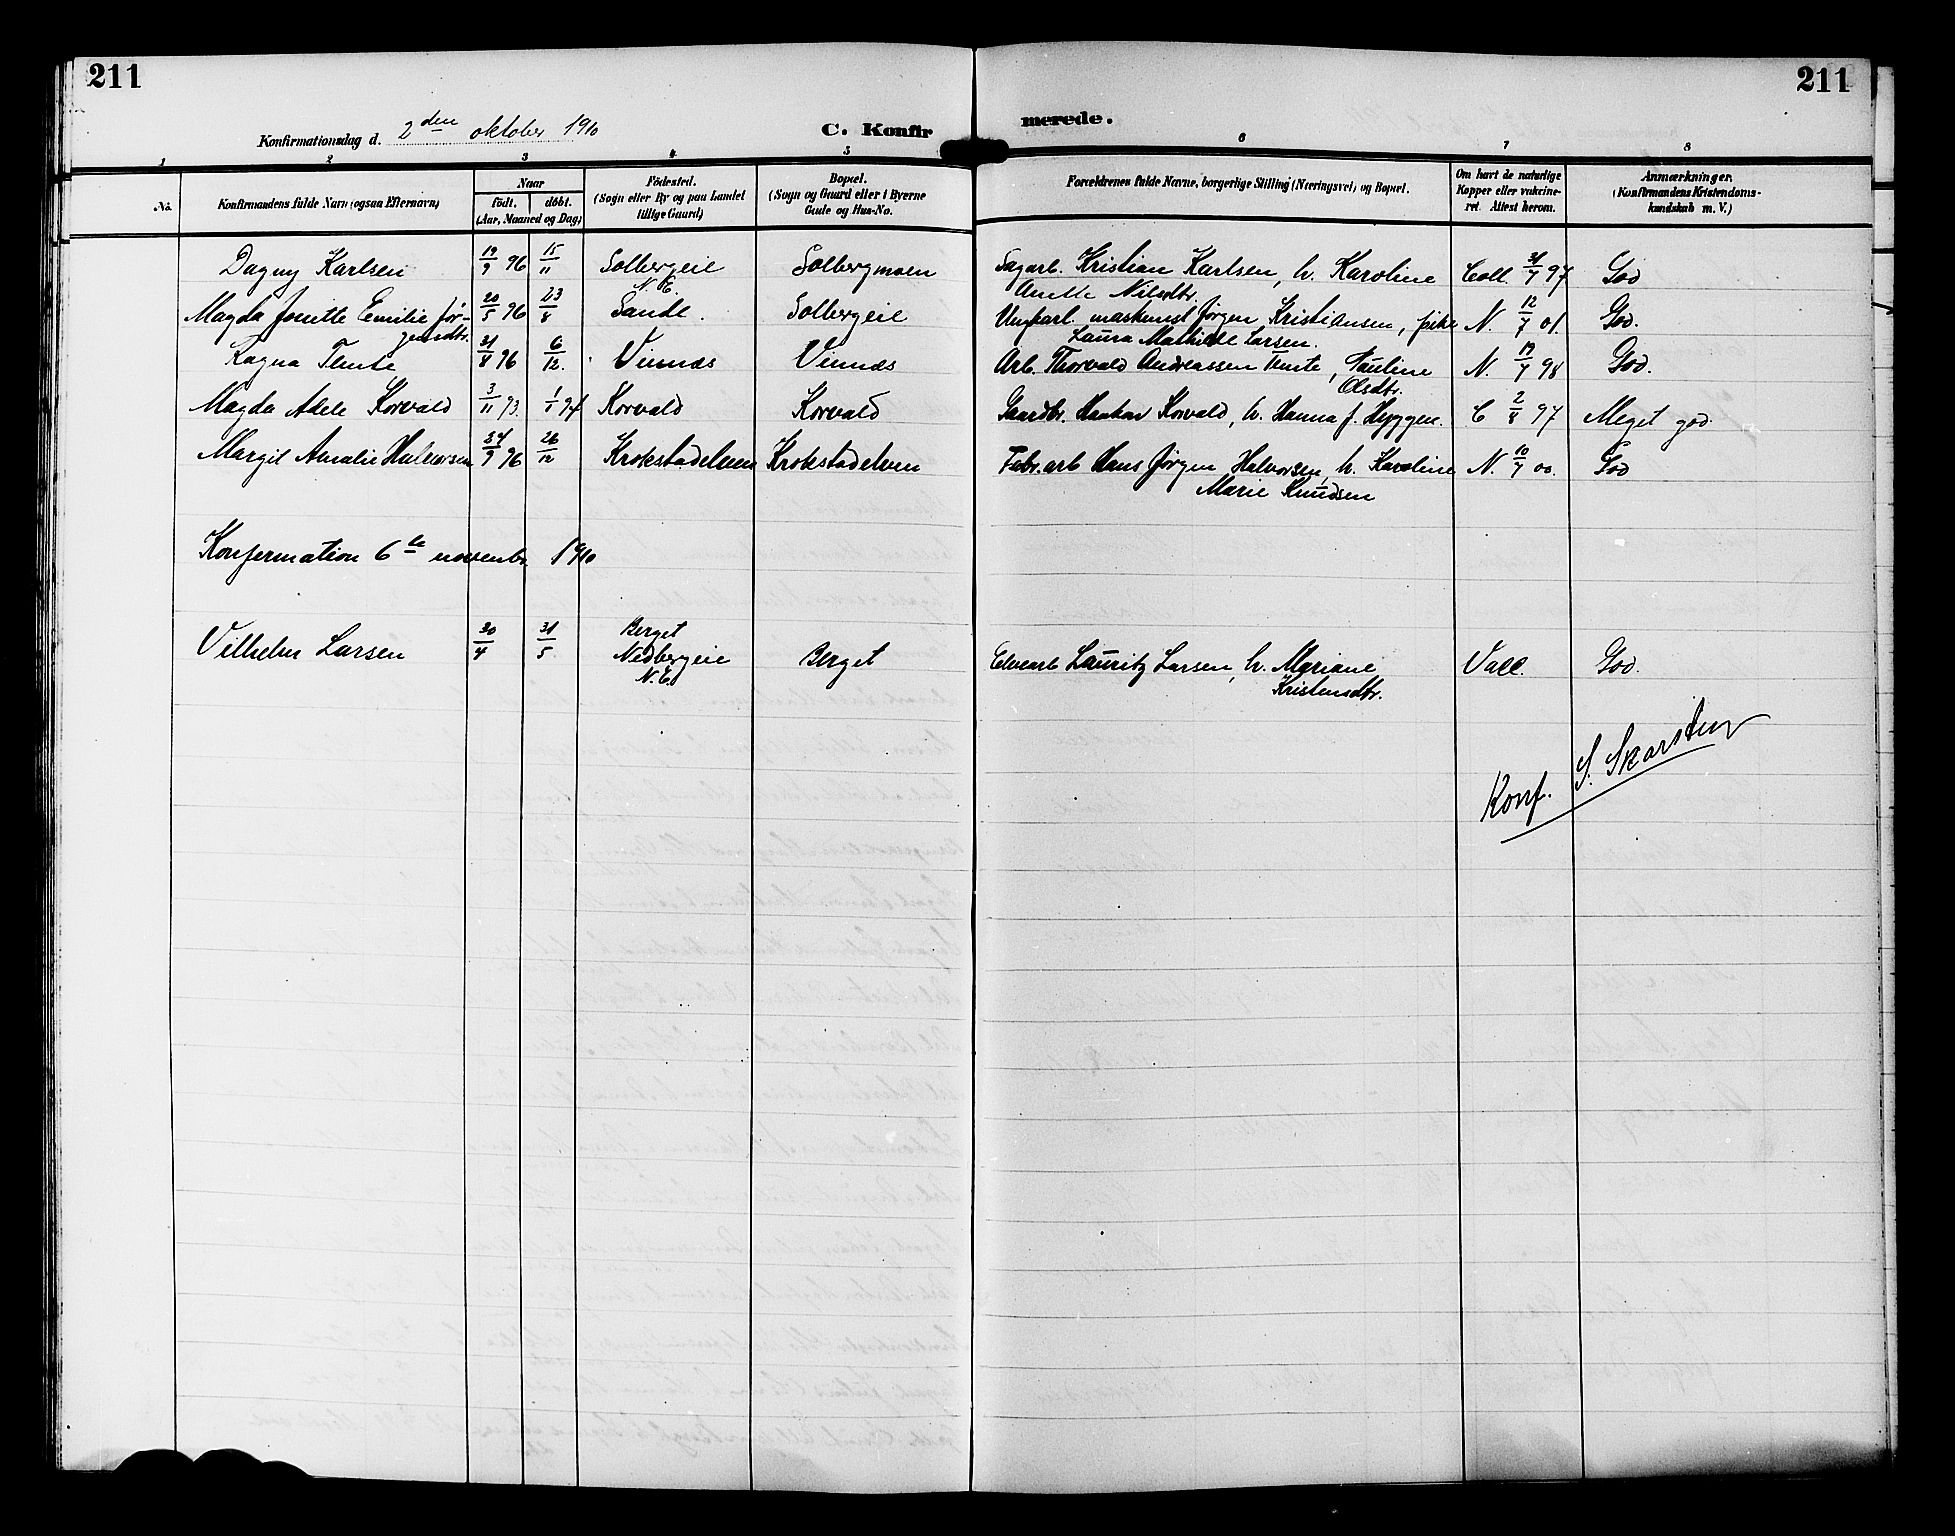 211
211
Konfirmationsdag d. 2den oktober 1910
C. Konfirmerede.
1 2 3 4 5 6 7 8
No. Konfirmandens fulde Navn (ogsaa Efternavn) Naar født. døbt. (Aar, Maaned og Dag) Fødested. (Sogn eller By og paa Landet tillige Gaard) Bopæl. (Sogn og Gaard eller i Byerne Gade og Hus-No. Forældrenes fulde Navne, borgerlige Stilling (Næringsvei) og Bopæl. Om havt de naturlige Kopper eller vakcineret. Attest herom. Anmærkninger. (Konfirmandens Kristendomskundskab m. V.)
Dagny Karlsen 19/9 96 15/11 Solbergeie N.E. Solbergmoen Sagarb. Kristian Karlsen, h. Karoline Coll. 31/7 97 God
Anette Nilsdtr.
Magda Jonette Emilie Jør- 20/5 96 23/8 Sande. Solbergeie Ungkarl. maskinist Jørgen Kristiansen, pike N. 12/7 01. God.
gensdtr. Laura Mathilde Larsen.
Ragna Tente 31/8 96 6/12. Vinnes Vinnes Arb. Thorvald Andreassen Tente, Pauline N. 19/7 98 God.
Olsdtr.
Magda Adele Korvald 3/11 93. 1/1 94 Korvald Korvald Gaardbr. Haakon Korvald, h. Hanna f. Hyggen. C 2/8 97 Meget god.
Margit Amalie Halvorsen 96 26/12 Krokstadelven Krokstadelven Fabr.arb Hans Jørgen Halvorsen, h. Karoline N. 10/7 00. God
Marie Knudsen
Konfirmation 6te novembr 1910
Vilhelm Larsen 30/4 31/5 Berget Nedbergeie N.E. Berget Elvearb Lauritz Larsen, h. Mariane Vacc. God.
Kristensdtr.
Konf. S. Skarsten